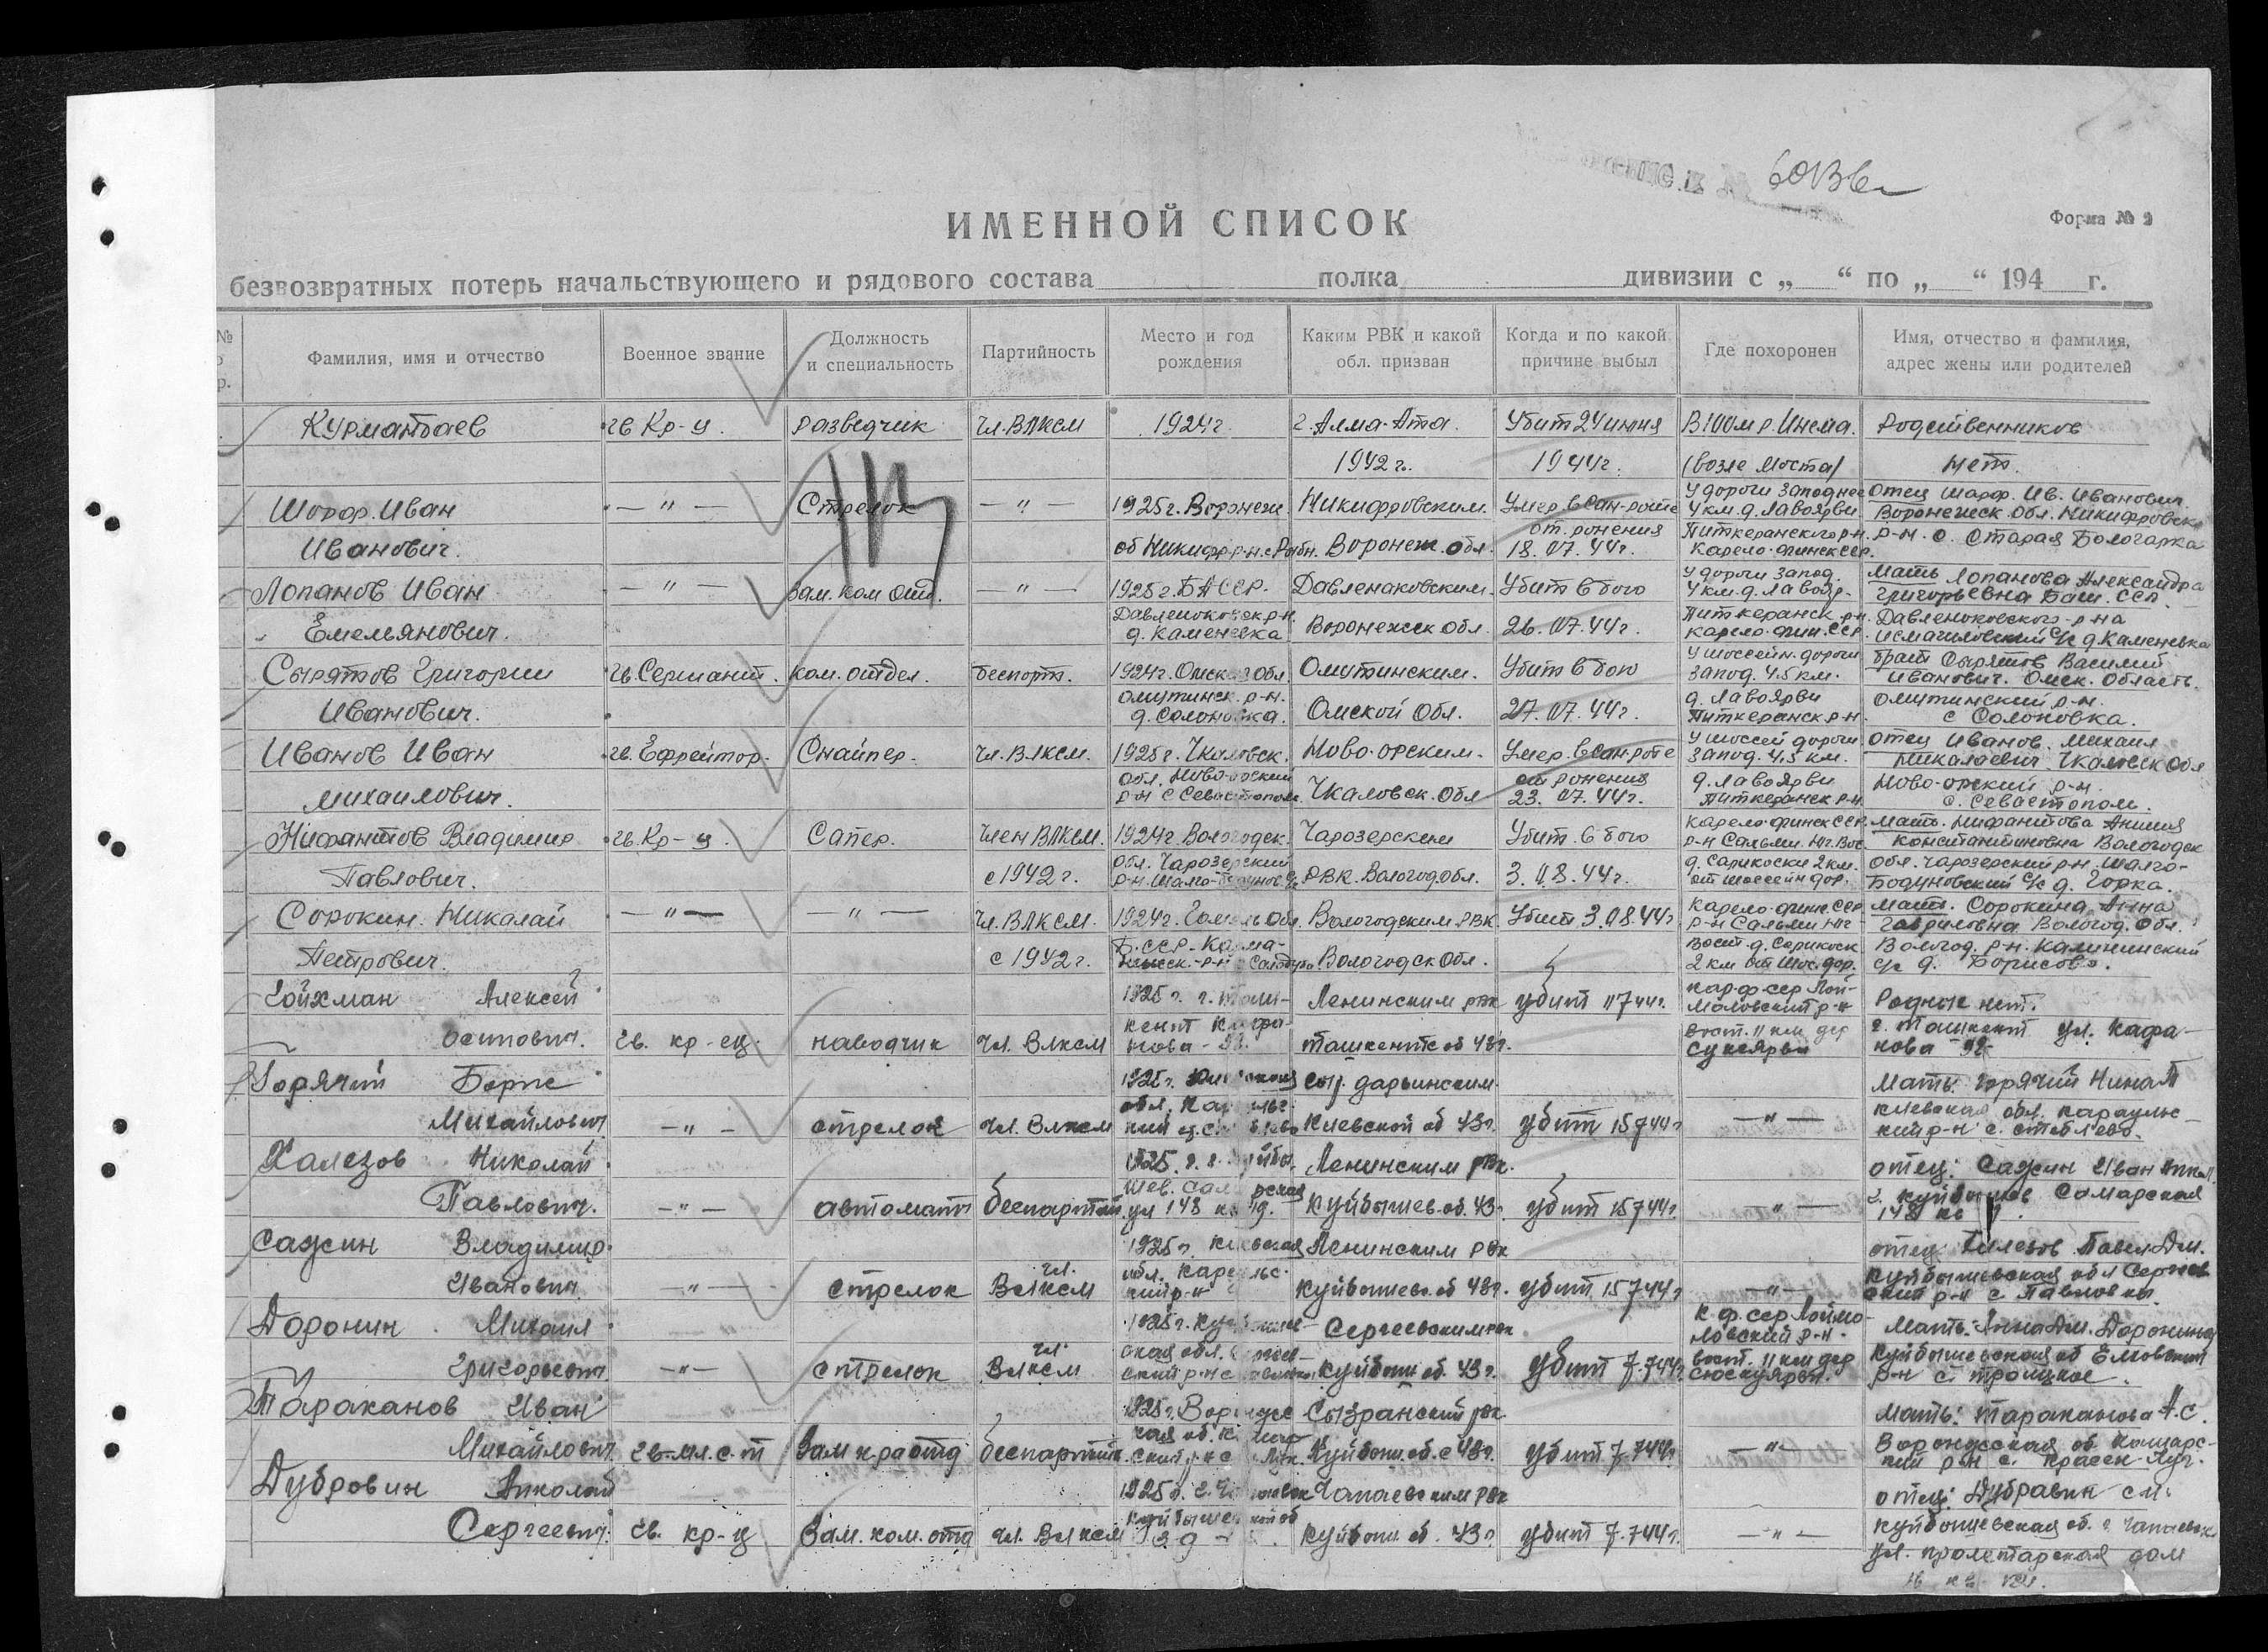 60136с
ИМЕННОЙ СПИСОК
Форма № 2
безвозвратных потерь начальствующего и рядового состава полка дивизии с „ “ по „ “ 194 г.
№ Фамилия, имя и отчество Военное звание Должность и специальность Партийность Место и год рождения Каким РВК и какой обл. призван Когда и по какой причине выбыл Где похоронен Имя, отчество и фамилия, адрес жены или родителей
Курматаев гв Кр-ц. разведчик Чл. ВЛКСМ 1924 г. г. Алма-Ата Убит 24 июня В 100 м р. Инема. Родственников
1942 г. 1944 г. (возле моста) нет.
Шорф. Иван — " — Стрелок — " — 1925 г. Воронеж Никифровским. Умер в сан-роте у дороги Западнее Отец Шарф. Ив. Иванович
4 км. д. Лавоярви Воронежск. Обл. Никифровск
Иванович. об Никифр-р-н. Воронеж. обл. от ронения 18.07.44 г. Питкеранского р-н. Карело-финск сср. р-н. с. Старая Бологарка
Лопанов Иван — " — Зам. ком отд. — " — 1925 г. БАССР. Давленаковским. Убит в бою у дороги запад. 4 км. д. Лавояр. Мать Лопанова Александра Григорьевна Баш. ССР.
Емельянович. Давленоковск р-н. д. Каменевка Воронежск обл. 26.07.44 г. Питкеранск р-н карело-фин. ССР. Давленоковского-р-на Исмагиловский с/с д. Каменевка
Сырятов Григории гв. Сержант. Ком. отдел. беспарт. 1924 г. Омск обл. Омутинским. Убит в бою у шоссейн. дороги запад. 4.5 км. брат Сырятов Василий Иванович. Омск. область.
Иванович. омутинск. р-н. д. Солоновка. Омской Обл. 27.07.44 г. д. Лавоярви Питкеранск р-н. омутинский р-н. с Солоновка.
Иванов Иван гв. Ефрейтор. Снайпер. Чл. ВЛКСМ. 1925 г. Чкаловск. Ново-орским. Умер. в сан-роте у шоссей дороги запад. 4.5 км. отец Иванов. Михаил Николаевич Чкаловск Обл
Михаилович. обл. Ново-орский р-н с Севастополь Чкаловск. Обл от ронения 23.07.44 г. д. Лавоярви Питкеранск р-н Ново-орский р-н. с. Севастополь.
Нифантов Владимир гв. Кр-ц. Сапер. Член ВЛКСМ. 1924 г. Вологодск. Чарозерским Убит в бою Карело-финск ССР. р-н Сальми. Юг. Вос. мать. Нифантова Анисия Константиновна Вологодск
Павлович. с 1942 г. обл. Чарозерский РВК. Вологод. обл. 3.08.44 г. д. Сарикоски 2 км. от шоссейн дор. обл. Чарозерский р-н. Шалго-Бодуновский с/с д. Горка.
Сорокин. Николай — " — — " — Чл. ВЛКСМ. 1924 г. Гомель Обл Вологодским РВК Убит 3.08.44 г Карело-финн. ССР р-н Сальми Юг мать. Сорокина Анна Гавриловна Вологод. Обл.
Петрович. с 1942 г. Б. ССР. Вологодск Обл. Вост. д. Сарикоск 2 км от шос. дор. Вологод. р-н. Калининский с/с д. Борисово.
Гойхман Алексей 1925 г. г. Таш- Ленинским рвк убит 11 7 44 г. кар-ф-сср Лой-моловский р-н Родных нет.
Осипович. Гв. кр-ец. наводчик Чл. Влксм кент Кафа-нова-92. Ташкентс об 43 г. вост. 11 км дер Сукоярви г. Ташкент ул. Кафа-нова 92
Горячий Борис 1925 г. Киевская Сыр дарьинским Мать: горячий Нина П
Михайлович — " — стрелок Чл. Влксм обл. Киевской об 43 г. убит 15 7 44 г — " — Киевская обл. Караульс-кий р-н с. Стеблево.
Халезов Николай 1925. г. г. Куйбы. Ленинским рвк. отец: Сажин Иван
Павлович. — " — автомат беспартий. шев. Самарская ул 148 кв. 19. Куйбышев-об. 43 г. убит 15 7 44 г. " — г. Куйбышев Самарская 148 кв
Сажин Владимир 1925 г. Киевская Ленинским рвк отец Халезов Павел Дм.
Иванович — " — стрелок Чл. Влксм обл. Караульс-кий р-н Куйбышевс. об 43 г. убит 15 7 44 г — " — Куйбышевская обл Сергиевский р-н с Павловка.
Доронин Михаил 1925 г. Куйбышев- Сергеевским рвк К. ф. сср Лоймо-ловский р-н. Мать: Анна Дм. Доронина
Григорьевич — " — стрелок Чл. Влксм ская обл. Куйбыш об. 43 г. убит 7.7 44 г. вост. 11 км дер Сюскуярви. Куйбышевская об Елховский р-н с. Троицкое.
Тараканов Иван 1925 г. Воронежс Сызранский рвк. Мать: Тараканова А. С.
Михайлович гв. мл. с-т Зам к-ра отд беспартийн. Куйбыш. об. с 43 г. убит 7 7 44 г. — " — Воронежская об. Кашарс-кий р-н с. Красен-Луч.
Дубровин Николай 1925 г. г. Чапаевск Чапаевским рвк отец: Дубравин См.
Сергеевич. Гв. кр-ц Зам. ком. отд Чл. Влксм Куйбышевской об Куйбыш об. 43 г. убит 7.7 44 г. — " — Куйбышевская об. г. Чапаевск
ул. пролетарская дом
16 кв